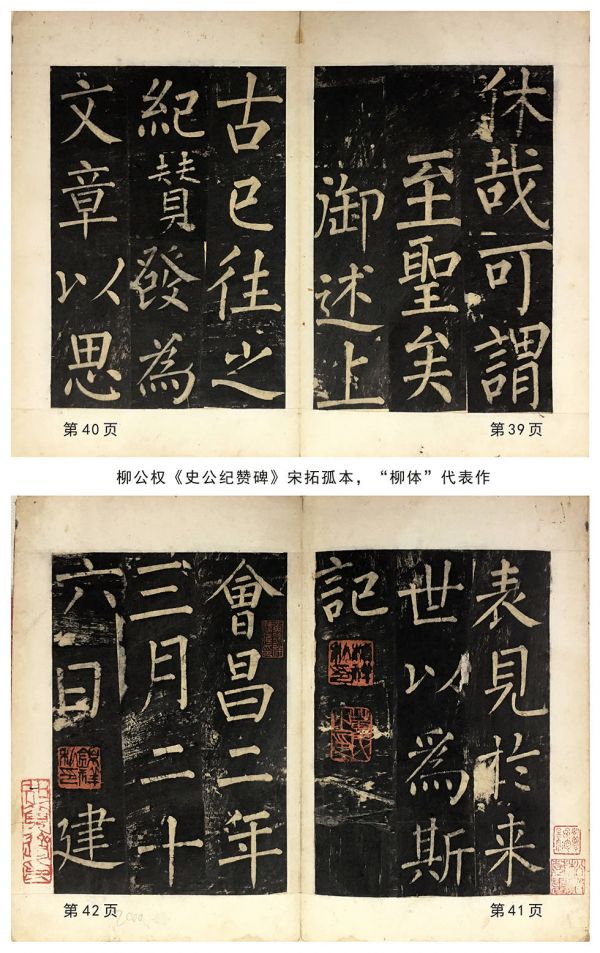 休哉可謂
至聖矣
御述上
第39页
古已往之
紀贊發為
文章以思
第40页
柳公权《史公纪赞碑》宋拓孤本，“柳体”代表作
表見於来
世以爲斯
記
第41页
會昌二年
三月二十
六日建
第42页